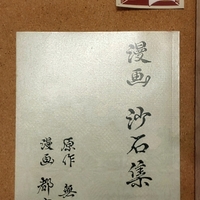 漫画 沙石集
原作 無
漫画 都